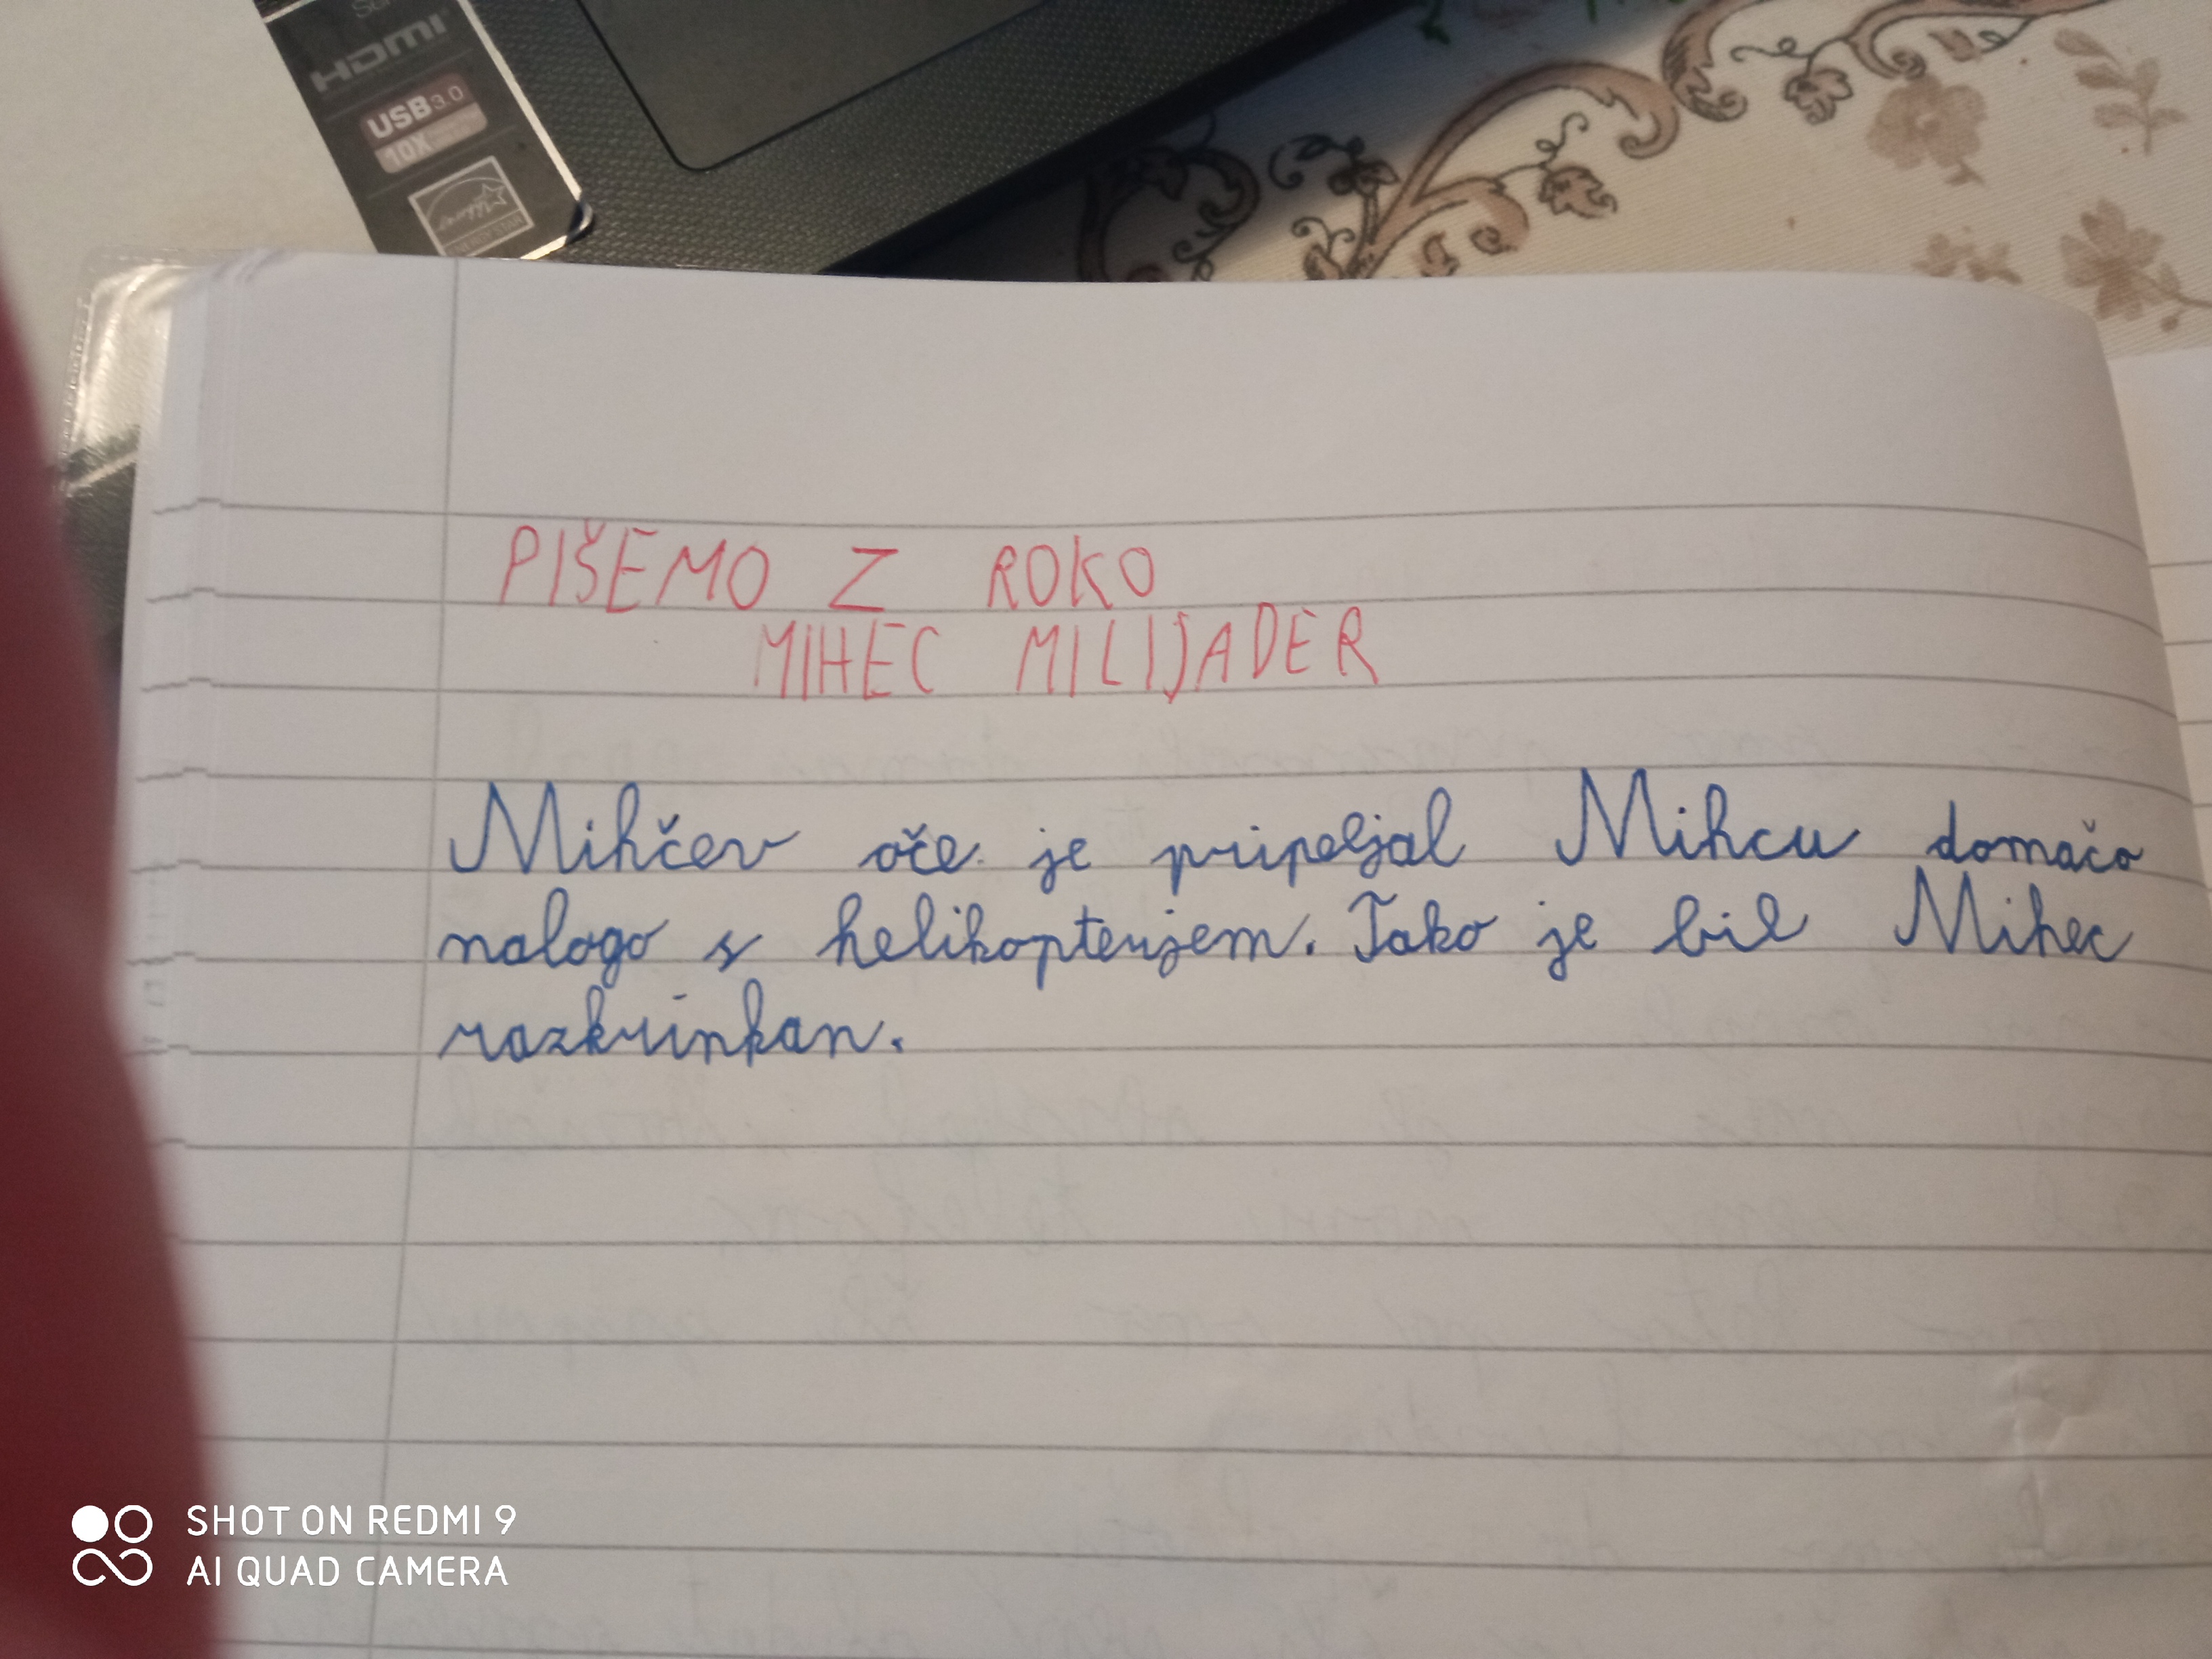 HDMI
USB 3.0
10X
ENERGY STAR
PIŠEMO Z ROKO
MIHEC MILIJADER
Mihčev oče je pripeljal Mihcu domačo
nalogo s helikopterjem. Tako je bil Mihec
razkrinkan.
SHOT ON REDMI 9
AI QUAD CAMERA